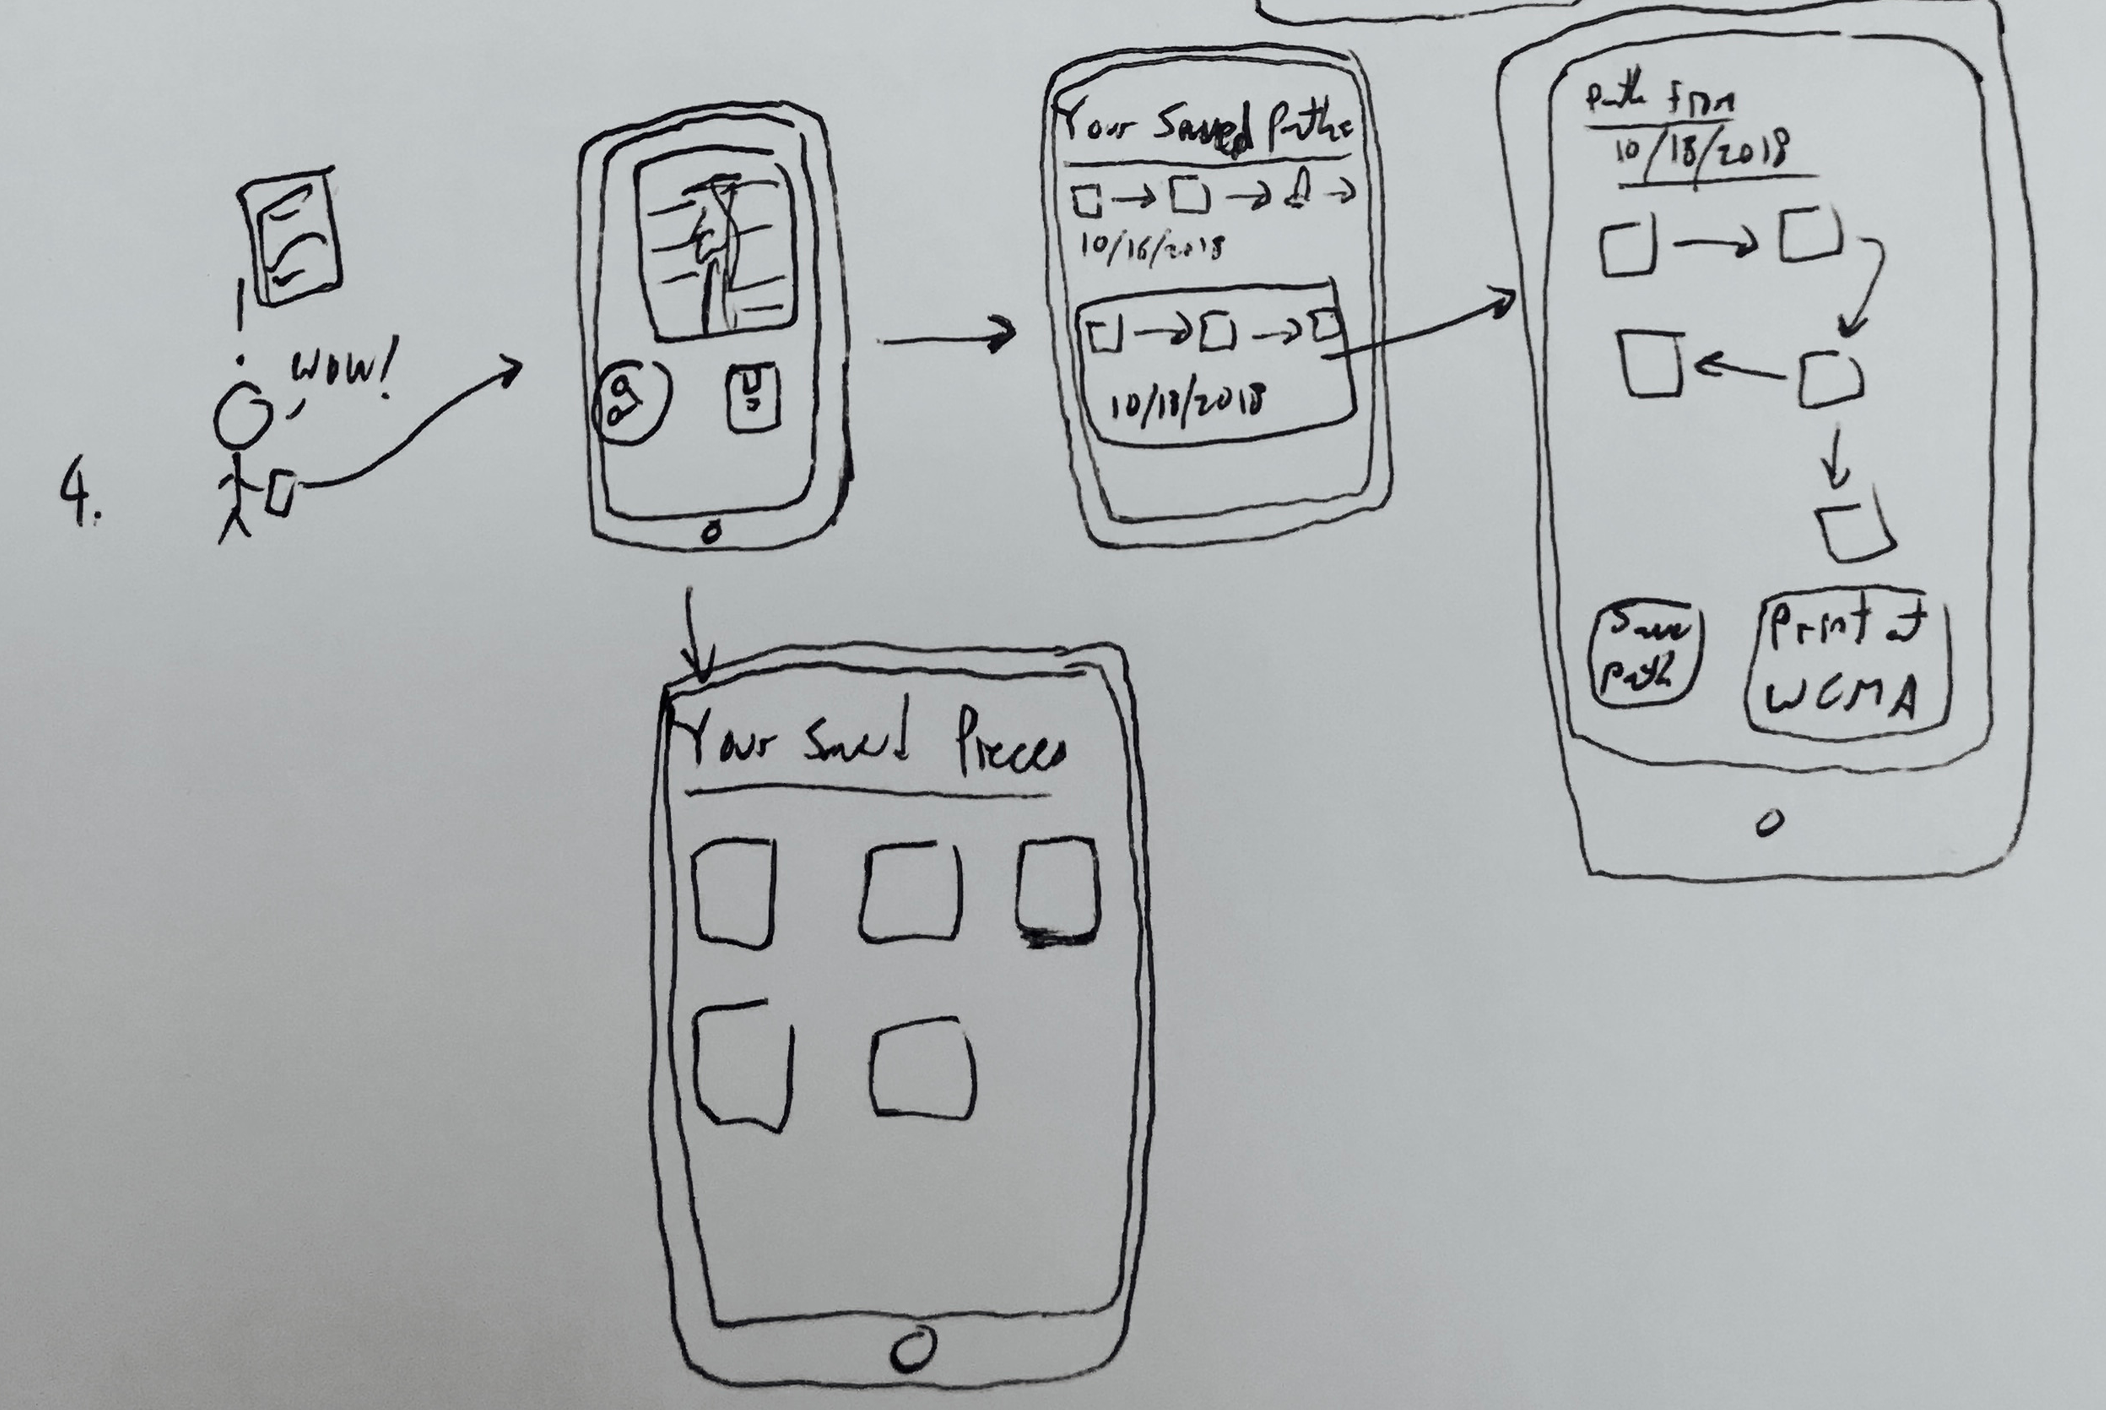 4.
WOW!
Your Saved Paths
10/16/2018
10/18/2018
Path From
10/18/2018
Save
Path
Print at
WCMA
Your Saved Pieces